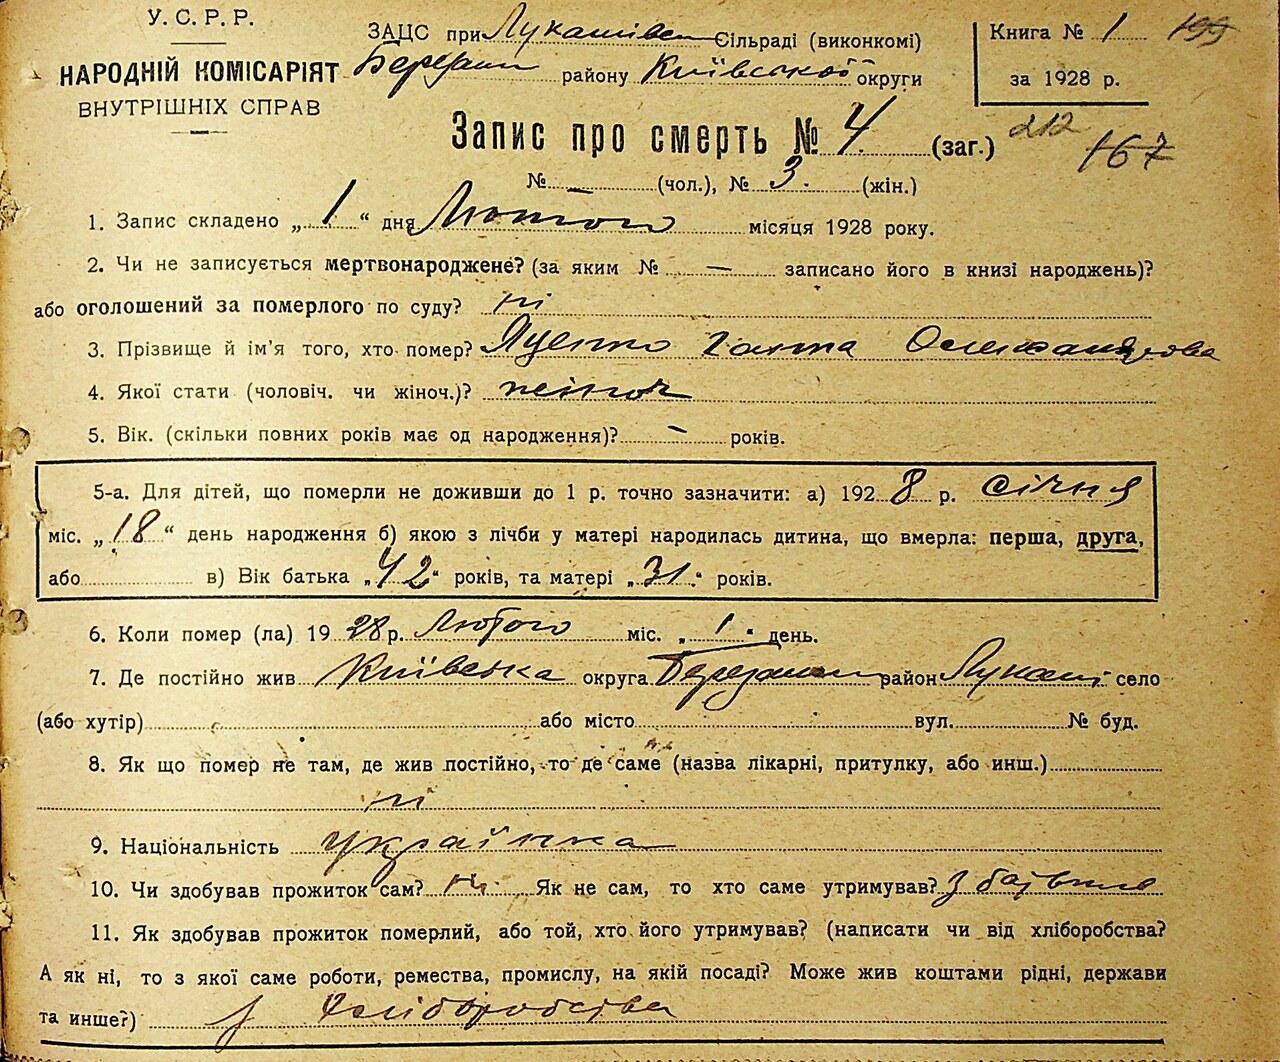 У. С. Р. Р.
НАРОДНІЙ КОМІСАРІЯТ
ВНУТРІШНІХ СПРАВ
ЗАЦС при Лукашівск Сільраді (виконкомі)
Березан району Київської округи
Книга № 1 199
за 1928 р.
Запис про смерть № 4 (заг.) 212 167
№ — (чол.), № 3. (жін.)
1. Запис складено „ 1 “ дня Лютого місяця 1928 року.
2. Чи не записується мертвонароджене? (за яким № — записано його в книзі народжень)?
або оголошений за померлого по суду? ні
3. Прізвище й ім'я того, хто помер? Яценко Ганна Олександрова
4. Якої стати (чоловіч. чи жіноч.)? жіноч
5. Вік. (скільки повних років має од народження)? - років.
5-а. Для дітей, що померли не доживши до 1 р. точно зазначити: а) 1928 р. січня
міс. „ 18 “ день народження б) якою з лічби у матері народилась дитина, що вмерла: перша, друга,
або в) Вік батька „ 42 “ років, та матері „ 31 “ років.
6. Коли помер (ла) 19 28 р. Лютого міс. „ 1 “ день.
7. Де постійно жив Київська округа Березанск район Лукаші село
(або хутір) або місто вул. № буд.
8. Як що помер не там, де жив постійно, то де саме (назва лікарні, притулку, або инш.)
ні
9. Національність українка
10. Чи здобував прожиток сам? ні. Як не сам, то хто саме утримував?
11. Як здобував прожиток померлий, або той, хто його утримував? (написати чи від хліборобства?
А як ні, то з якої саме роботи, ремества, промислу, на якій посаді? Може жив коштами рідні, держави
та инше?) з Хліборобства